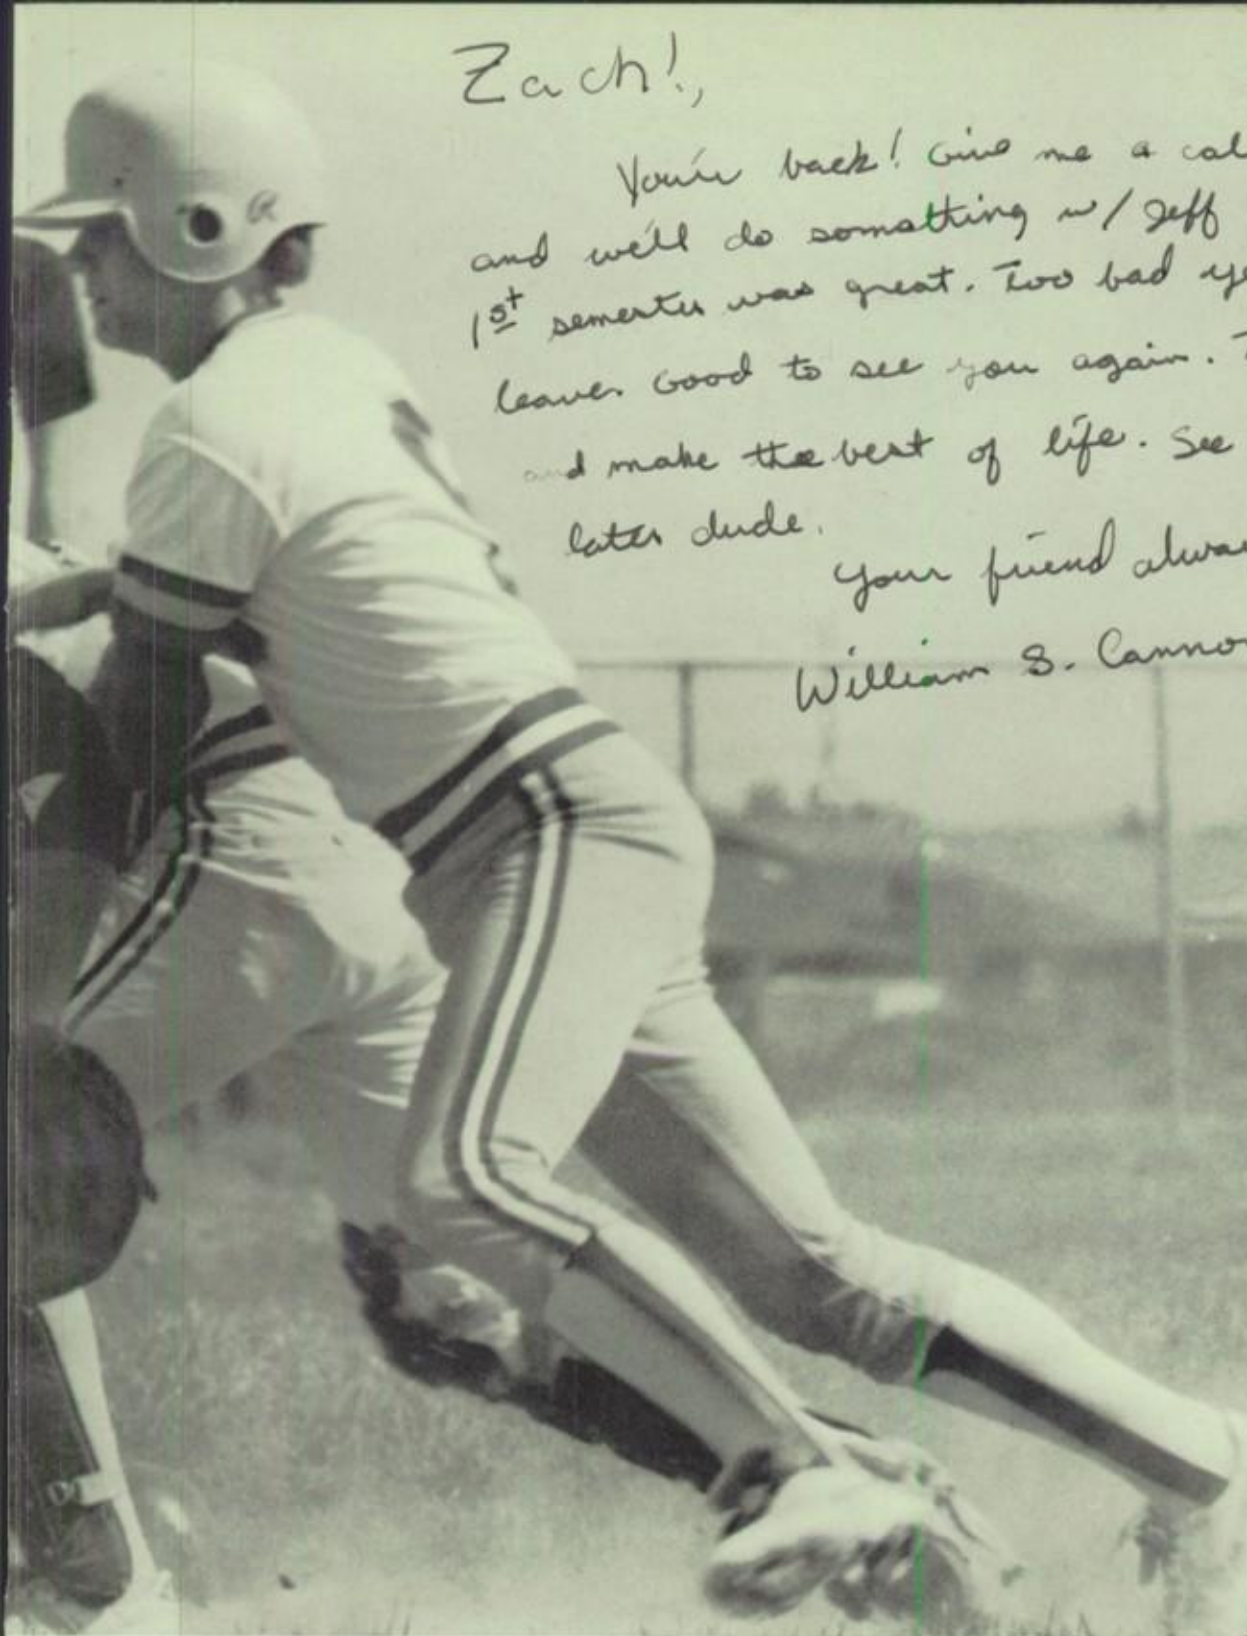 Zach!,
You're back! Give me a cal
and we'll do something w/ Jeff
1st semester was great. Too bad
leaves Good to see you again.
and make the best of life. See
later dude.
Your friend alwa
William S. Canno